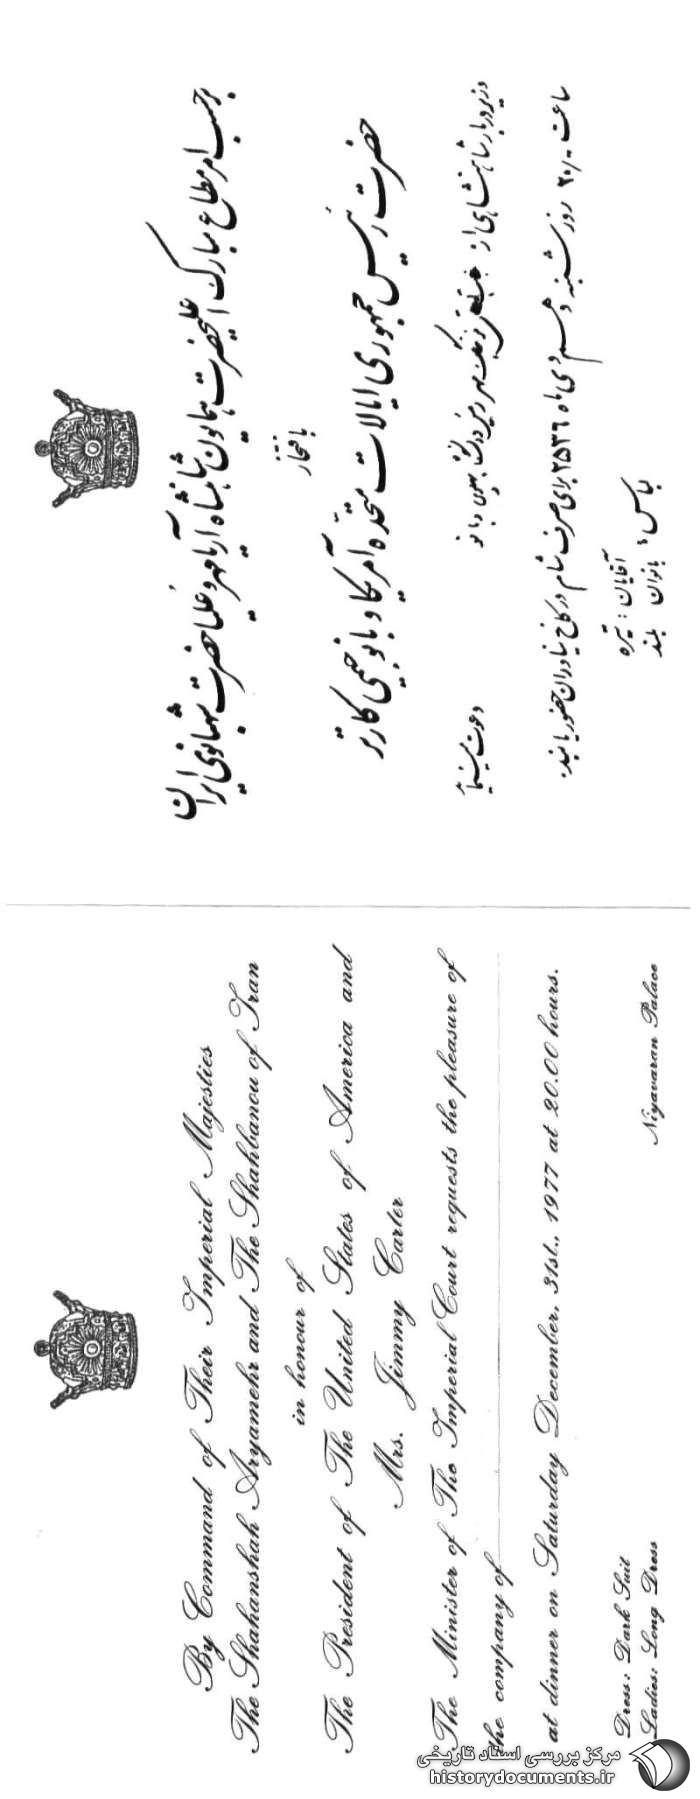 برحسب امر مطاع مبارک اعلیحضرت همایون شاهنشاه آریامهر و علیاحضرت شهبانوی ایران
بافتخار
حضرت رئیس جمهوری ایالات متحده آمریکا و بانو جیمی کارتر
وزیر دربار شاهنشاهی از
و بانو
دعوت مینماید
ساعت ۲۰/۰۰ روز شنبه دهم دی ماه ۲۵۳۶ برای صرف شام در کاخ نیاوران حضور یابند.
لباس :
آقایان : تیره
بانوان بلند
By Command of Their Imperial Majesties
The Shahanshah Aryamehr and The Shahbanou of Iran
in honour of
The President of The United States of America and
Mrs. Jimmy Carter
The Minister of The Imperial Court requests the pleasure of
the company of
at dinner on Saturday December, 31st., 1977 at 20.00 hours.
Dress: Dark Suit
Ladies: Long Dress
Niyavaran Palace
مرکز بررسی اسناد تاریخی
historydocuments.ir